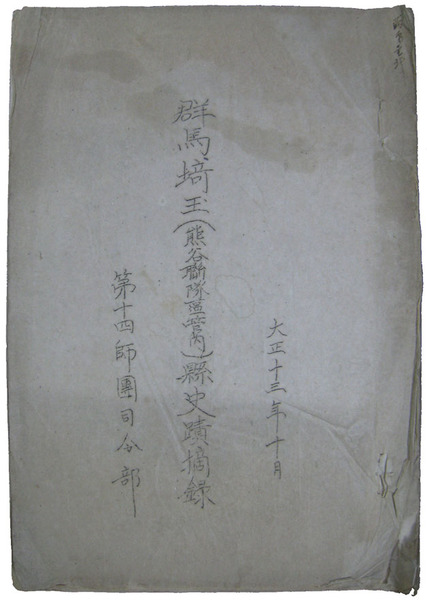 大正十三年十月
群馬埼玉(熊谷聯隊區管内)縣史蹟摘錄
第十四師團司令部